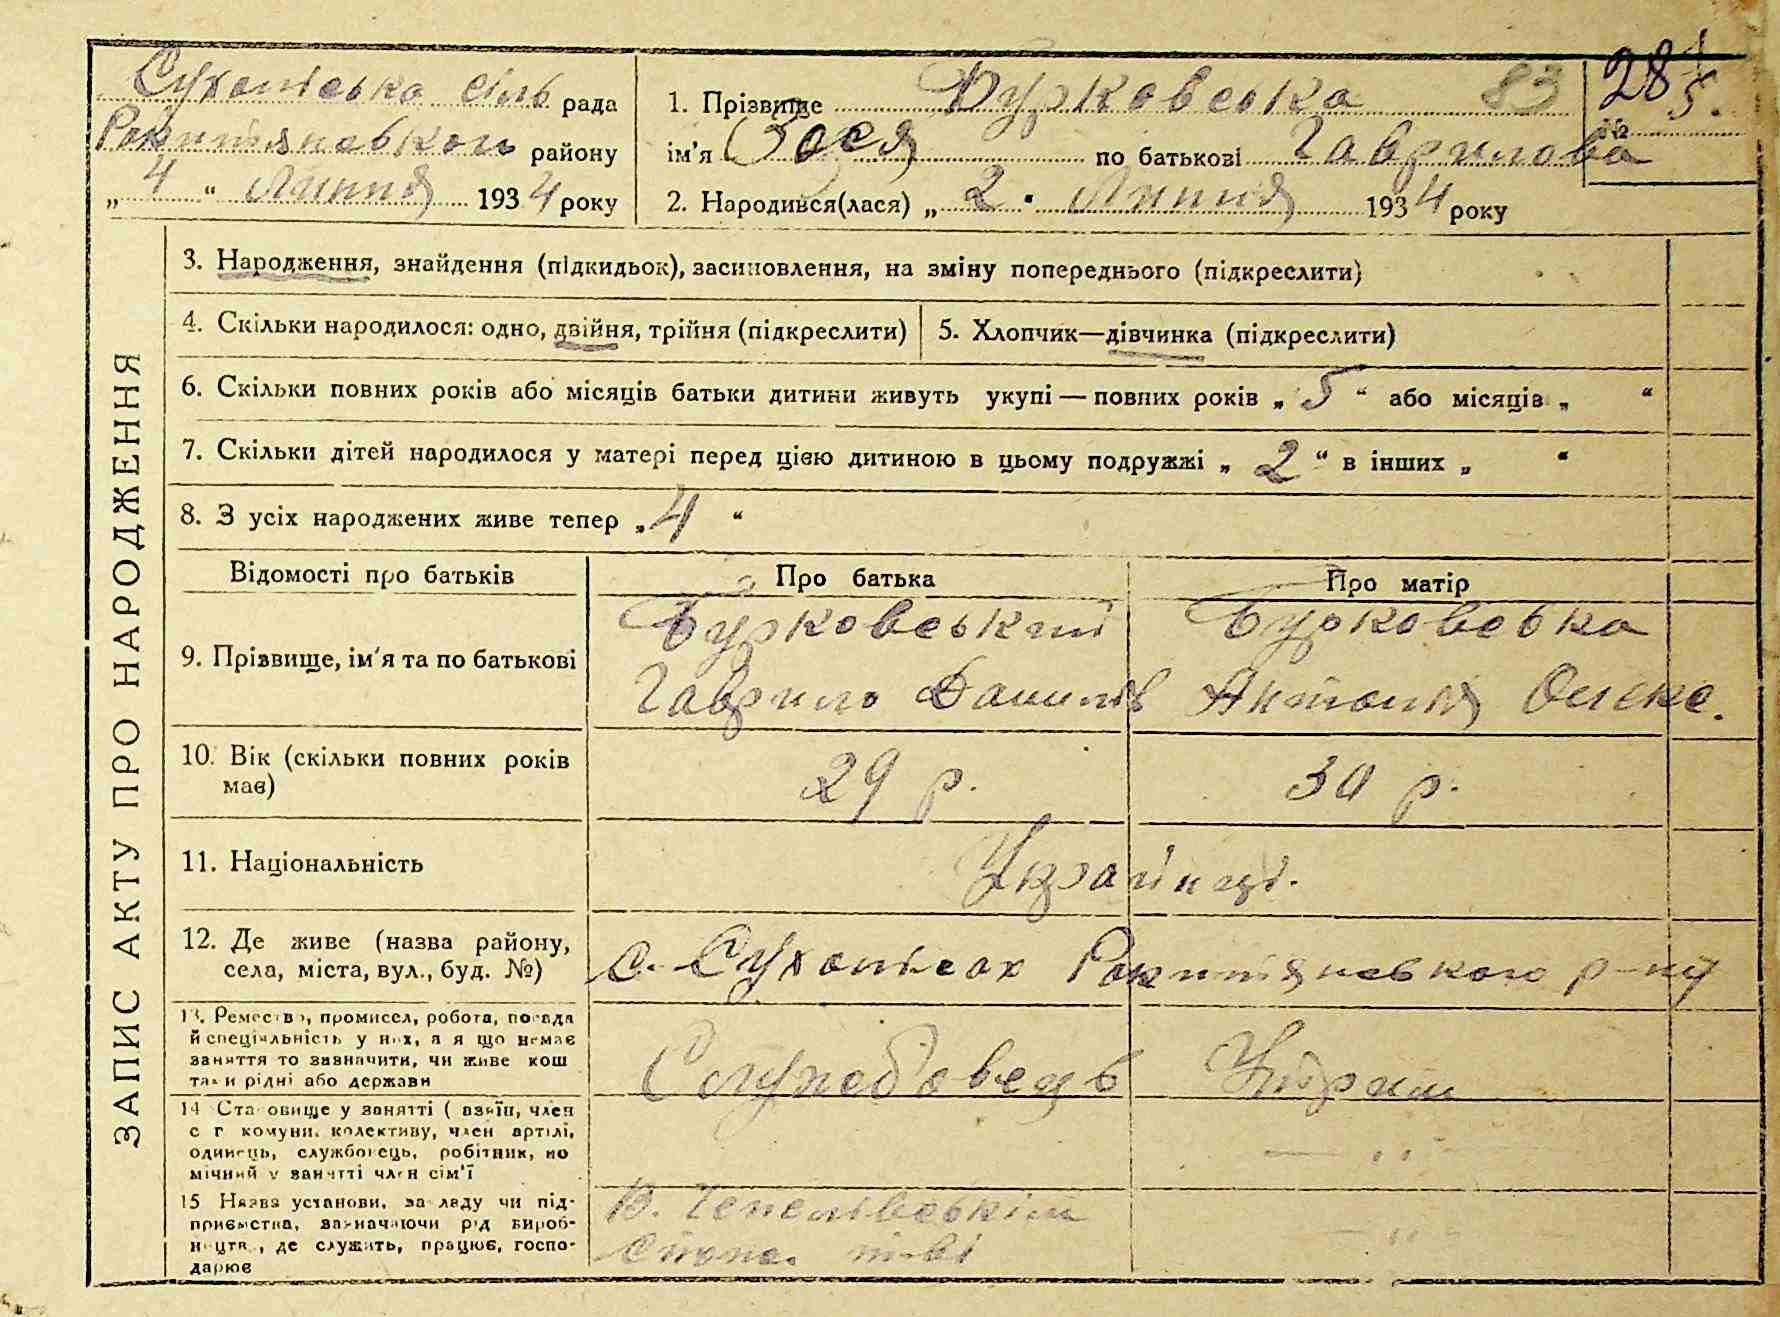 Сухоліська сіль рада
Рокитянського району
„ 4 “ Липня 1934 року
1. Прізвище Бурковська 83
28 1/5.
№
ім'я Зося по батькові Гаврилова
2. Народився(лася) „ 2 . Липня 1934 року
ЗАПИС АКТУ ПРО НАРОДЖЕННЯ
3. Народження, знайдення (підкидьок), засиновлення, на зміну попереднього (підкреслити)
4. Скільки народилося: одно, двійня, трійня (підкреслити)
5. Хлопчик—дівчинка (підкреслити)
6. Скільки повних років або місяців батьки дитини живуть укупі — повних років „ 5 “ або місяців „ “
7. Скільки дітей народилося у матері перед цією дитиною в цьому подружжі „ 2 “ в інших „ “
8. З усіх народжених живе тепер „ 4 “
Відомості про батьків
Про батька
Про матір
9. Прізвище, ім'я та по батькові
Бурковський
Гаврило Данилів
Бурковська
Антонія Олекс.
10. Вік (скільки повних років
має)
29 р.
30 р.
11. Національність
Українці.
12. Де живе (назва району,
села, міста, вул., буд. №)
с. Сухолісах Рокитянського р-ну
13. Ремество, промисел, робота, посада
й спеціяльність у них, а якщо немає
заняття то зазначити, чи живе кош
тами рідні або держави
Службовець
Утрим
14 Становище у занятті (хазяїн, член
с г комуни, колективу, член артілі,
одинець, службовець, робітник, по
мічний у занятті член сім'ї
— „ —
15 Назва установи, закладу чи під-
приємства, зазначаючи рід вироб-
ництва, де служить, працює, госпо-
дарює
В.
— „ —